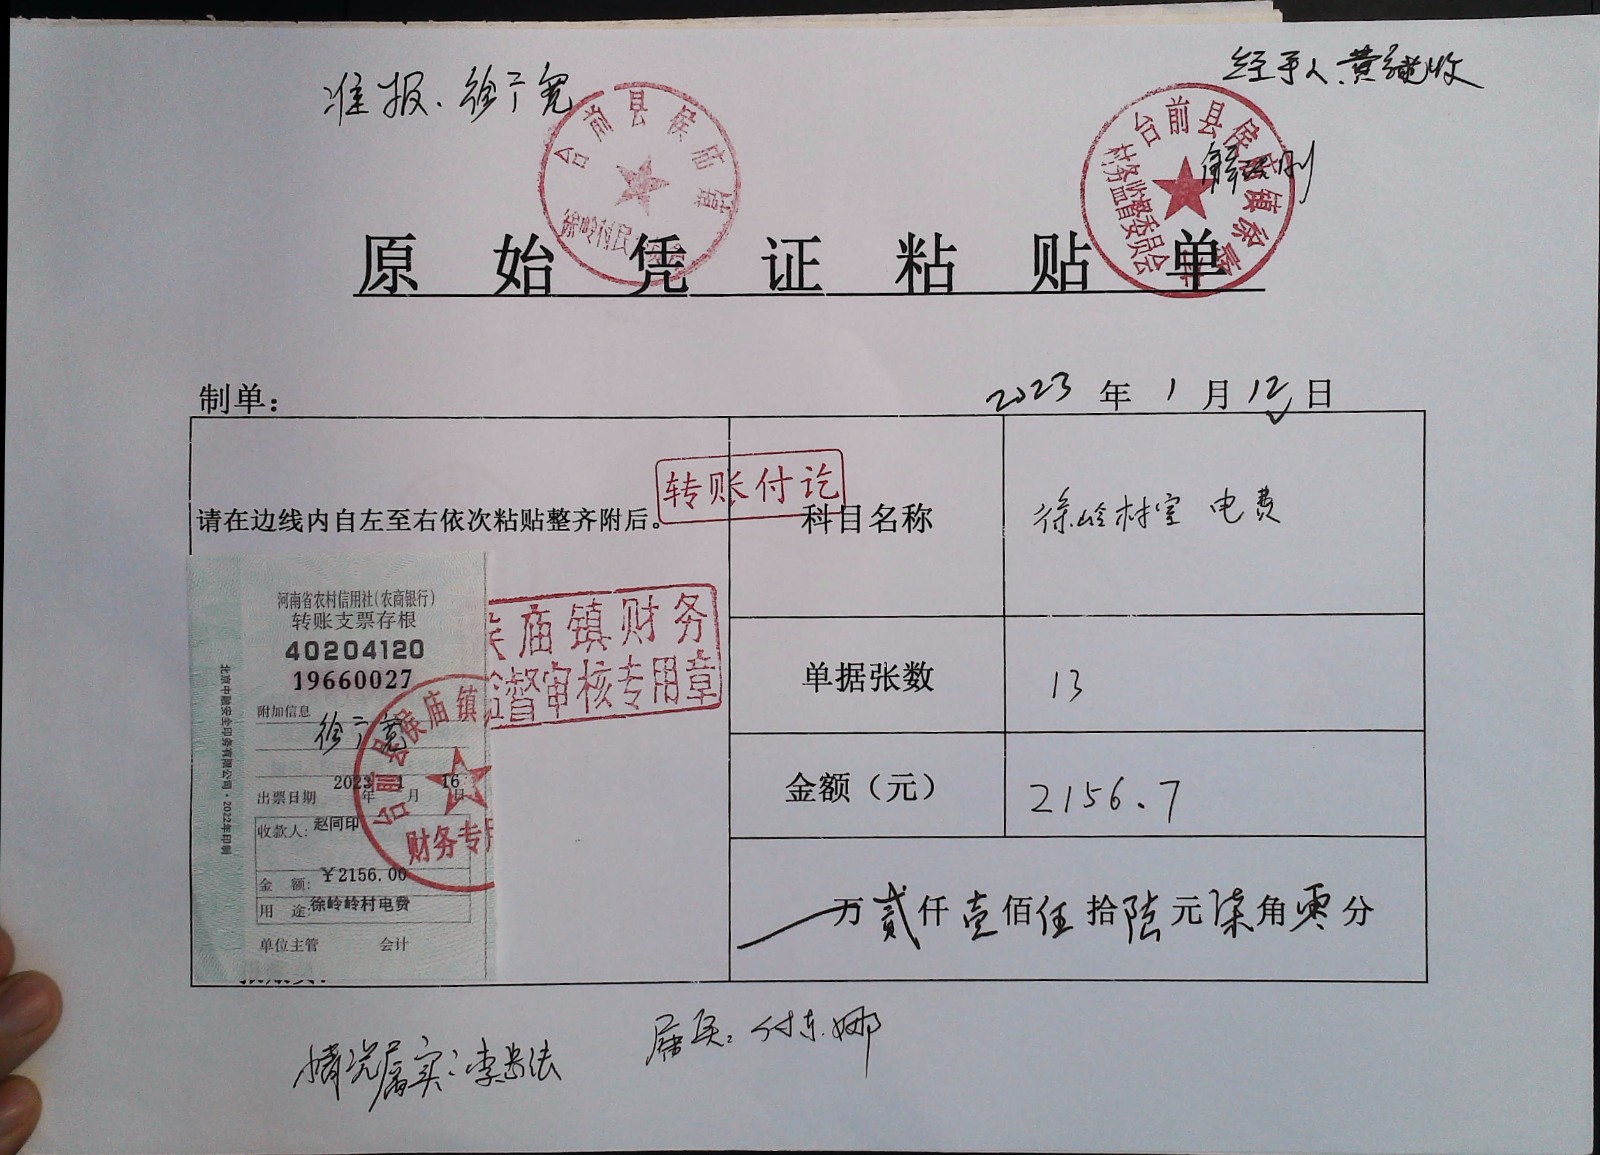 准报：徐广宽
经手人 黄
台前县侯庙镇
台前县侯庙镇徐岭
村务监督委员会
原始凭证粘贴单
制单：
2023年1月12日
转账付讫
请在边线内自左至右依次粘贴整齐附后。
科目名称 徐岭村室 电费
单据张数 13
金额（元） 2156.7
万贰仟壹佰伍拾陆元柒角零分
庙镇财务
督审核专用章
河南省农村信用社(农商银行)
转账支票存根
40204120
19660027
附加信息
徐广宽
出票日期 2023年1月16日
收款人：赵同印
金 额：￥2156.00
用 途：徐岭岭村电费
单位主管 会计
北京中融安全印务有限公司·2022年印制
台前县侯庙镇
财务专用
情况属实：李
属实：付东娜